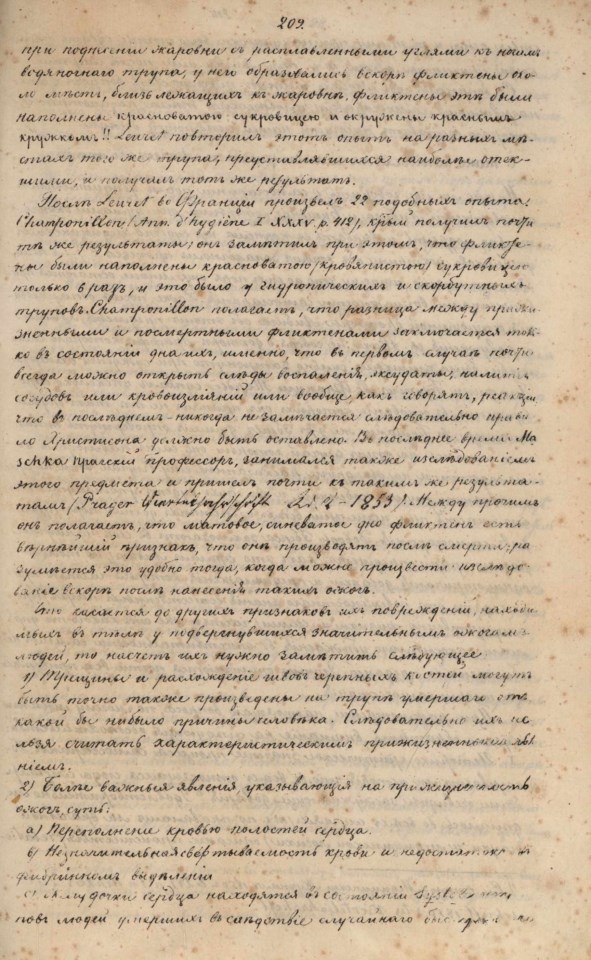 209.
при поднесеніи жаровни съ расплавленными углями къ ногамъ
водяночнаго трупа, у него образовались вскорѣ фликтены око-
ло мѣстъ, близь лежащихъ къ жаровнѣ. Фликтены этѣ были
наполнены красноватою сукровицею и окружены краснымъ
кружкомъ!! Leuret повторилъ этотъ опытъ на разныхъ мѣ-
стахъ того же трупа, представлявшихся наиболѣе отек-
шими, и получилъ тотъ же результатъ.
Послѣ Leuret во Франціи произвелъ 22 подобныхъ опыта
Champonillon (Ann. d'hygiène T XXXV. p. 412), крый получилъ почти
тѣ же результаты; онъ замѣтилъ при этомъ, что фликте-
ны были наполнены красноватою (кровянистою) сукровицею
только 8 разъ, и это было у гидропическихъ и скорбутныхъ
труповъ. Champonillon полагаетъ, что разница между прижи-
зненными и посмертными фликтенами заключается толь-
ко въ состояніи дна ихъ, именно, что въ первомъ случаѣ почти
всегда можно открыть слѣды воспаленія, эксудаты, налитіе
сосудовъ или кровоизліяній или вообще какъ говорятъ, реакціи
что въ послѣднемъ никогда не замѣчается слѣдовательно прави-
ло Христисона должно быть оставлено. Въ послѣднее время Ma
schka Прагскій профессоръ, занимался также изслѣдованіемъ
этого предмета и пришелъ почти къ такимъ же результа-
тамъ (Prager 1853). Между прочимъ
онъ полагаетъ, что матовое, синеватое дно фликтенъ есть
вѣрнѣйшій признакъ, что онѣ производятъ послѣ смерти; ра
зумѣется это удобно тогда, когда можно произвести изслѣдо-
ваніе вскорѣ послѣ нанесенія такихъ ожогъ.
Что касается до другихъ признаковъ ихъ поврежденій, находи-
мыхъ въ тѣлѣ у подвергнувшихся значительнымъ ожогамъ
людей, то насчетъ ихъ нужно замѣтить слѣдующее
1) Трещины и расхожденіе швовъ черепныхъ костей могутъ
быть точно также произведены на трупѣ умершаго отъ
какой бы нибыло причины человѣка. Слѣдовательно ихъ не
льзя считать характеристическимъ прижизненнымъ явле
ніемъ.
2) Болѣе важныя явленія, указывающія на прижизненность
ожогъ, суть:
а) Переполненіе кровью полостей сердца.
б) Незначительная свертываемость крови и недостаток въ
фибринномъ выдѣленіи
с) Желудочки сердца находятся въ состояніи
повъ людей умершихъ въ слѣдствіе случайнаго